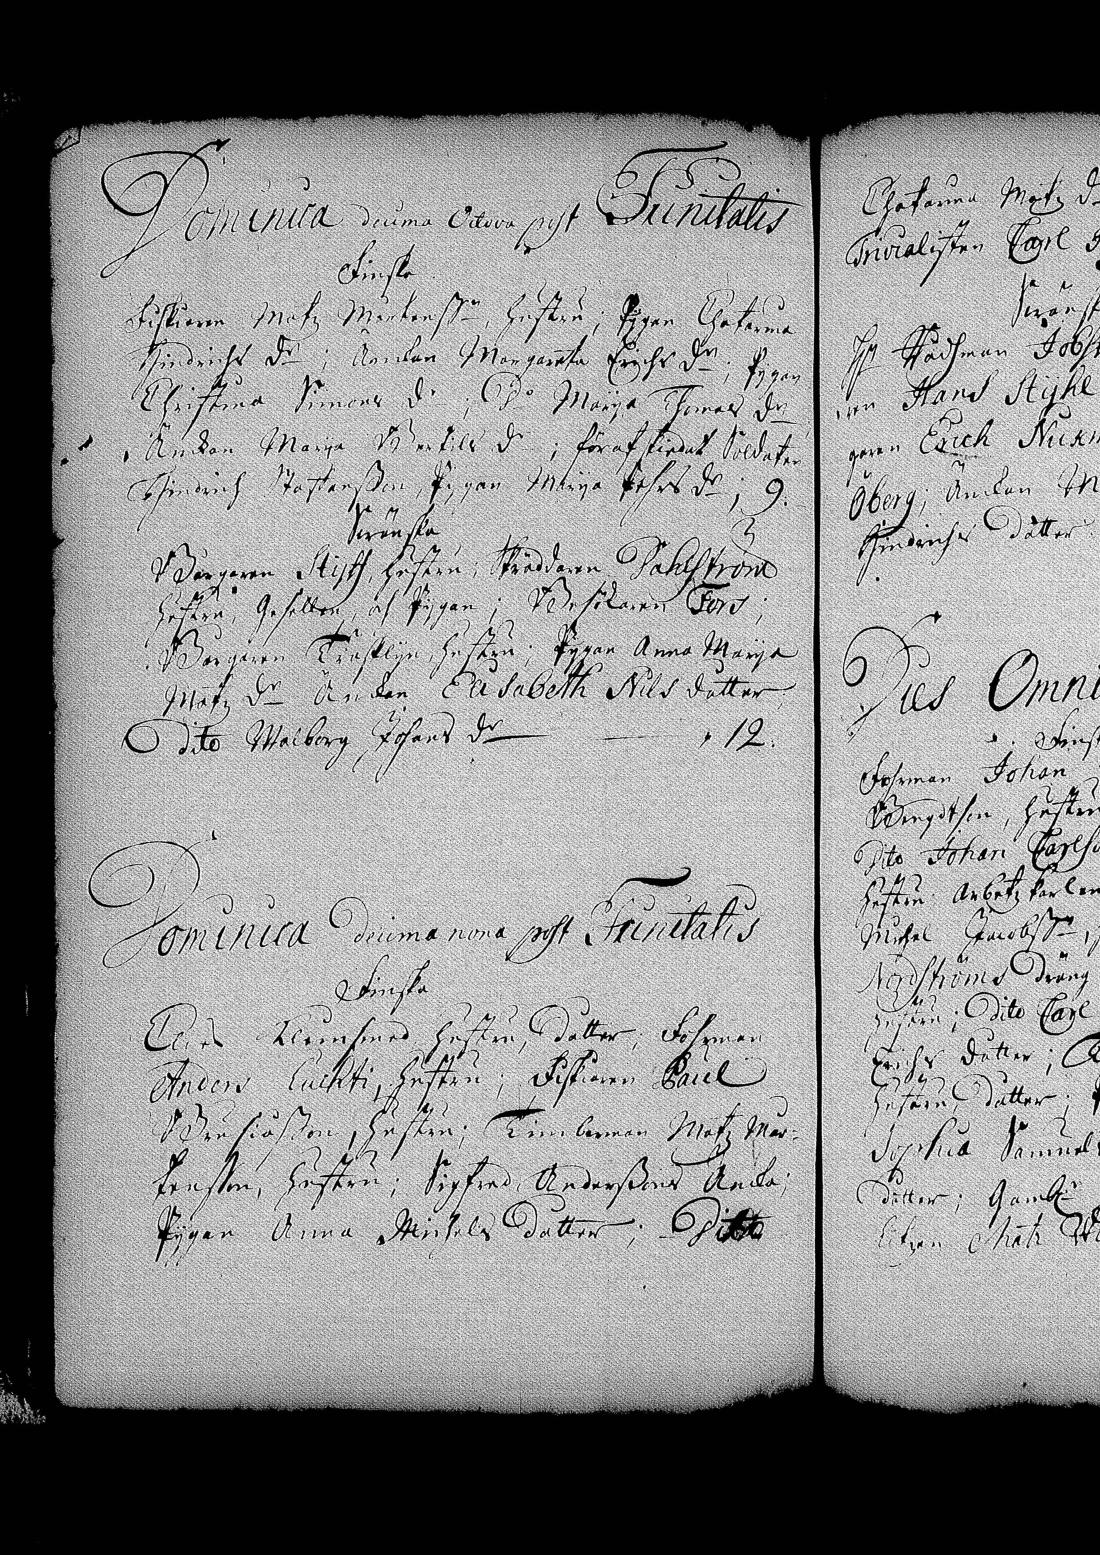 Dominica decima Octava post Trinitatis
Finska
Fiskiaren Matz Mårtenss:n, hustru; Pygan Chatarina
Hindrichs dr; Änckan Margareta Erichs dr; Pygan
Christina Simons dr; Do Marja Thomas dr
Änckan Marja Bertils dr; förafskiedat Soldaten
Hindrich Staffansson, Pygan Marja Pehrs dr; 9.
Swänska
Borgaren Stijfh, hustru; Skräddaren Dahlström
hustru, Gesällen, och Pygan; Besökaren Fors;
Borgaren Träsklijn, hustru; Pygan Anna Marja
Matz dr Änckan Elisabeth Nils dotter,
Dito Walborg Johans dr 12.
Dominica decima nona post Trinitatis
Finska
Clas Kleinsmed hustru, dotter, Fohrman
Anders Luckti, hustru; Fiskiaren Paul
hustru; Timberman Matz Mår-
tensson, hustru; Sigfred Anderssons Ancka;
Pygan Anna Michels dotter; Ditto
Chatarina Matz d
Trivialisten Carl
Swänsk
Rådhman Jobst
Hans Stijhl
garen Erich
Öberg; Änckan M
Hindrichs dotter.
Dies Omni
Finsk
Fohrman Johan
Bengdtson, hustru
Dito Johan Carls
hustru; Arbetzkarlen
Michel Jacobss:n,
Nordströms dräng
hustru; Dito Carl
Erichs dotter;
hustru, dotter;
Sophia Samuels
dotter; Gambl
Matz